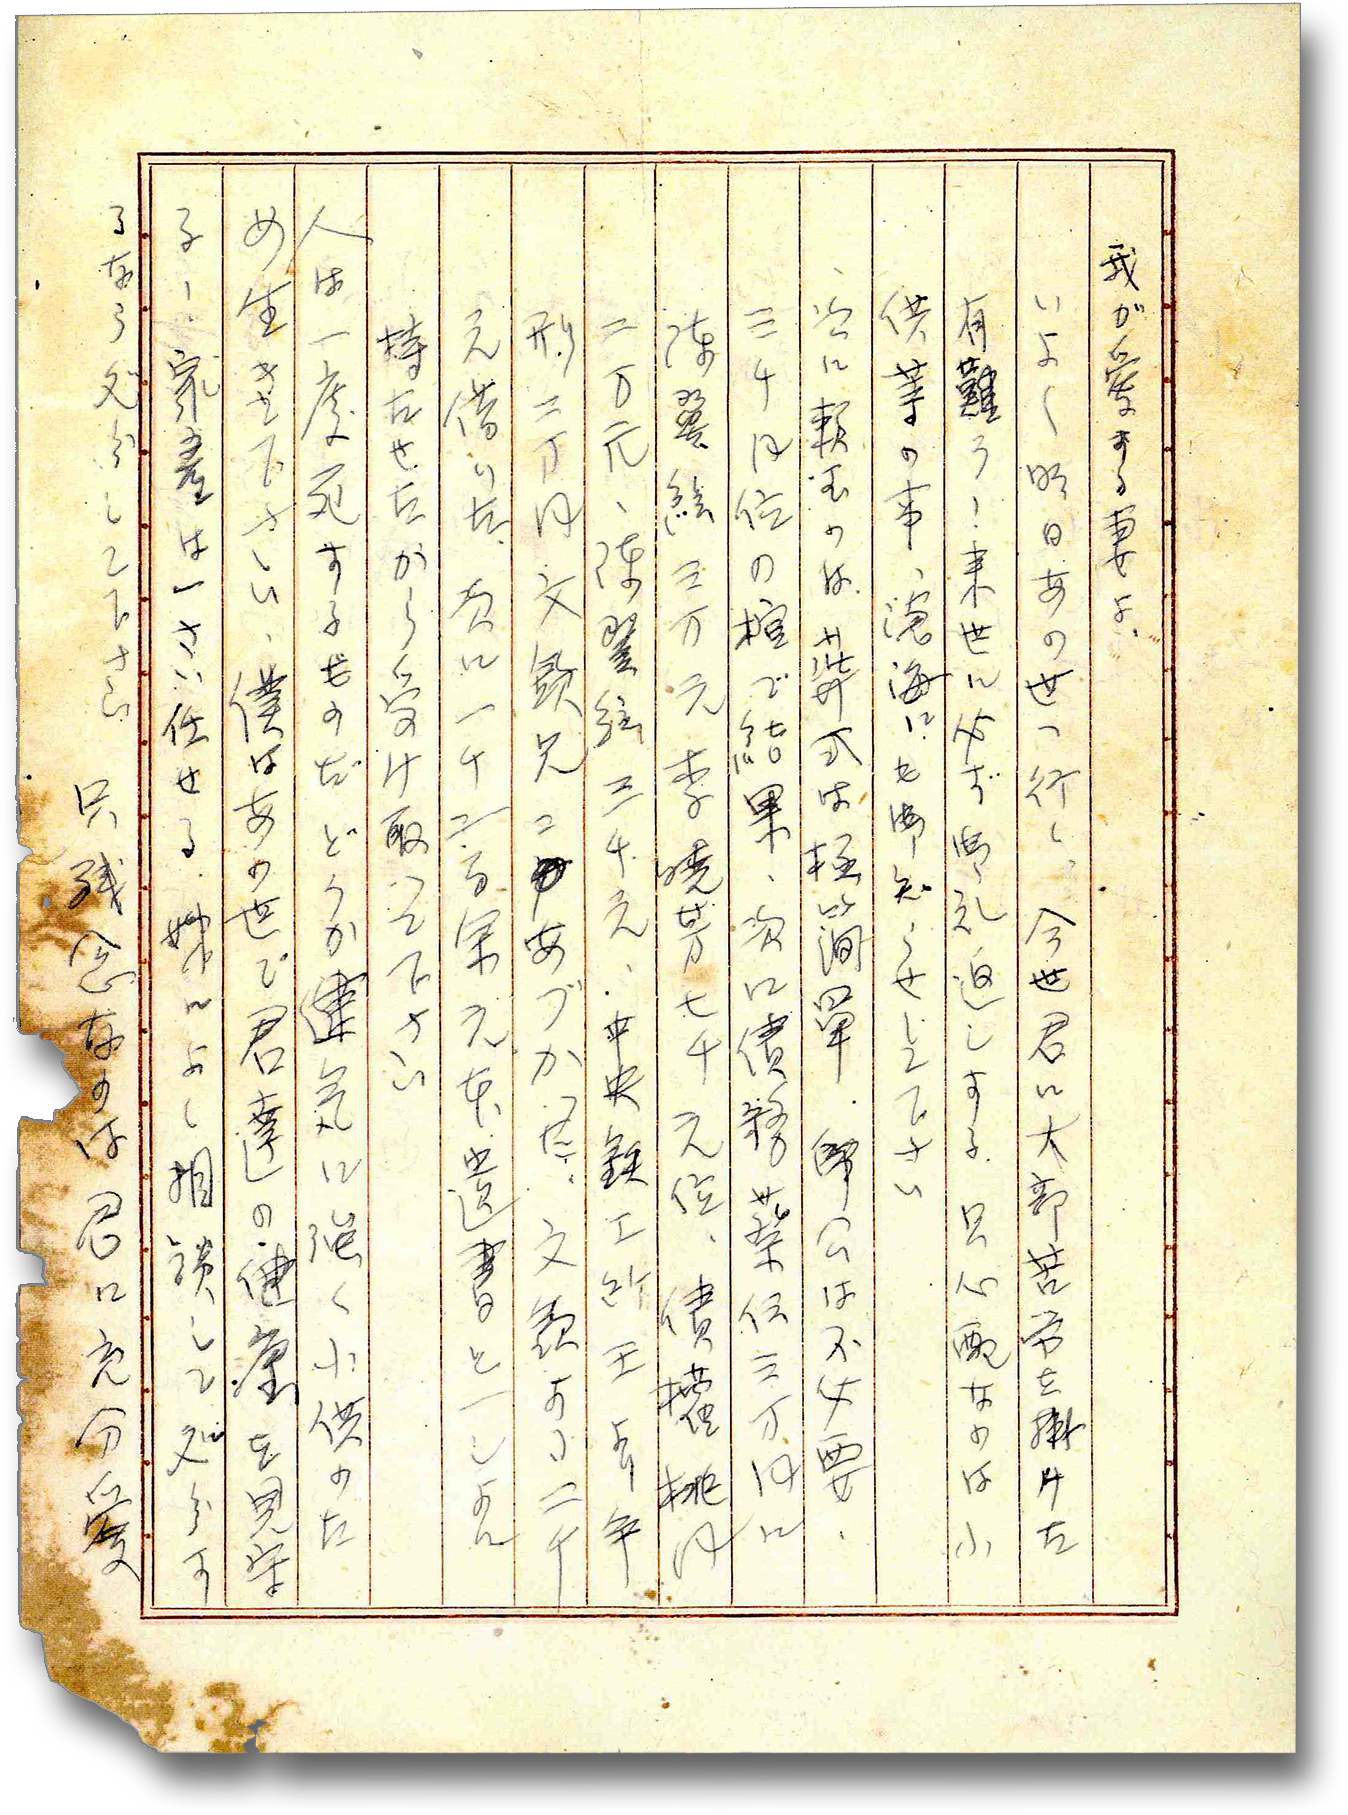 我が愛する妻よ、
いよ〱明日あの世へ行く、今世君に大部苦労を掛けた
有難う!来世に必ず御礼返しする 只心配なのは小
供等の事、滄海にも御知らせして下さい
次に頼むのは、葬式は極簡單、師公は不必要、
三千円位の棺で結果、次に債務 葉 三万円に
陳翠絵三万元 李暁芳七千元位、債權 桃円
二万元、陳翠絵三千元、中央鉄工所 王 年
形二万円 文欽兄ニ あづかった、文欽より二千
元借りた、次に一千二百 元 遺書と一しょに
持たせたから受け取って下さい
人は一度死するものだ どうか健気に強く小供のた
め生きて下さい、僕はあの世で君達の健康を見守
る、家産は一さい任せる、 によく相談して処分す
るなら処分して下さい 只残念なのは君に充分愛